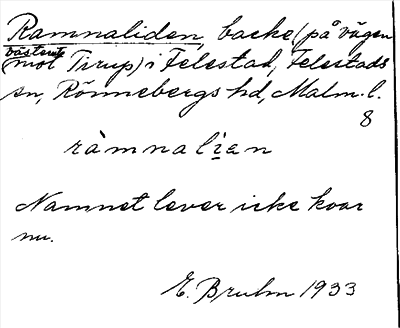 Ramnaliden, backe (på vägen
västerut
mot Tirup) i Felestad, Felestads
sn, Rönnebergs hd, Malm. l.
8
ràmnali̯en
Namnet lever icke kvar
nu.
E. Bruhn 1933